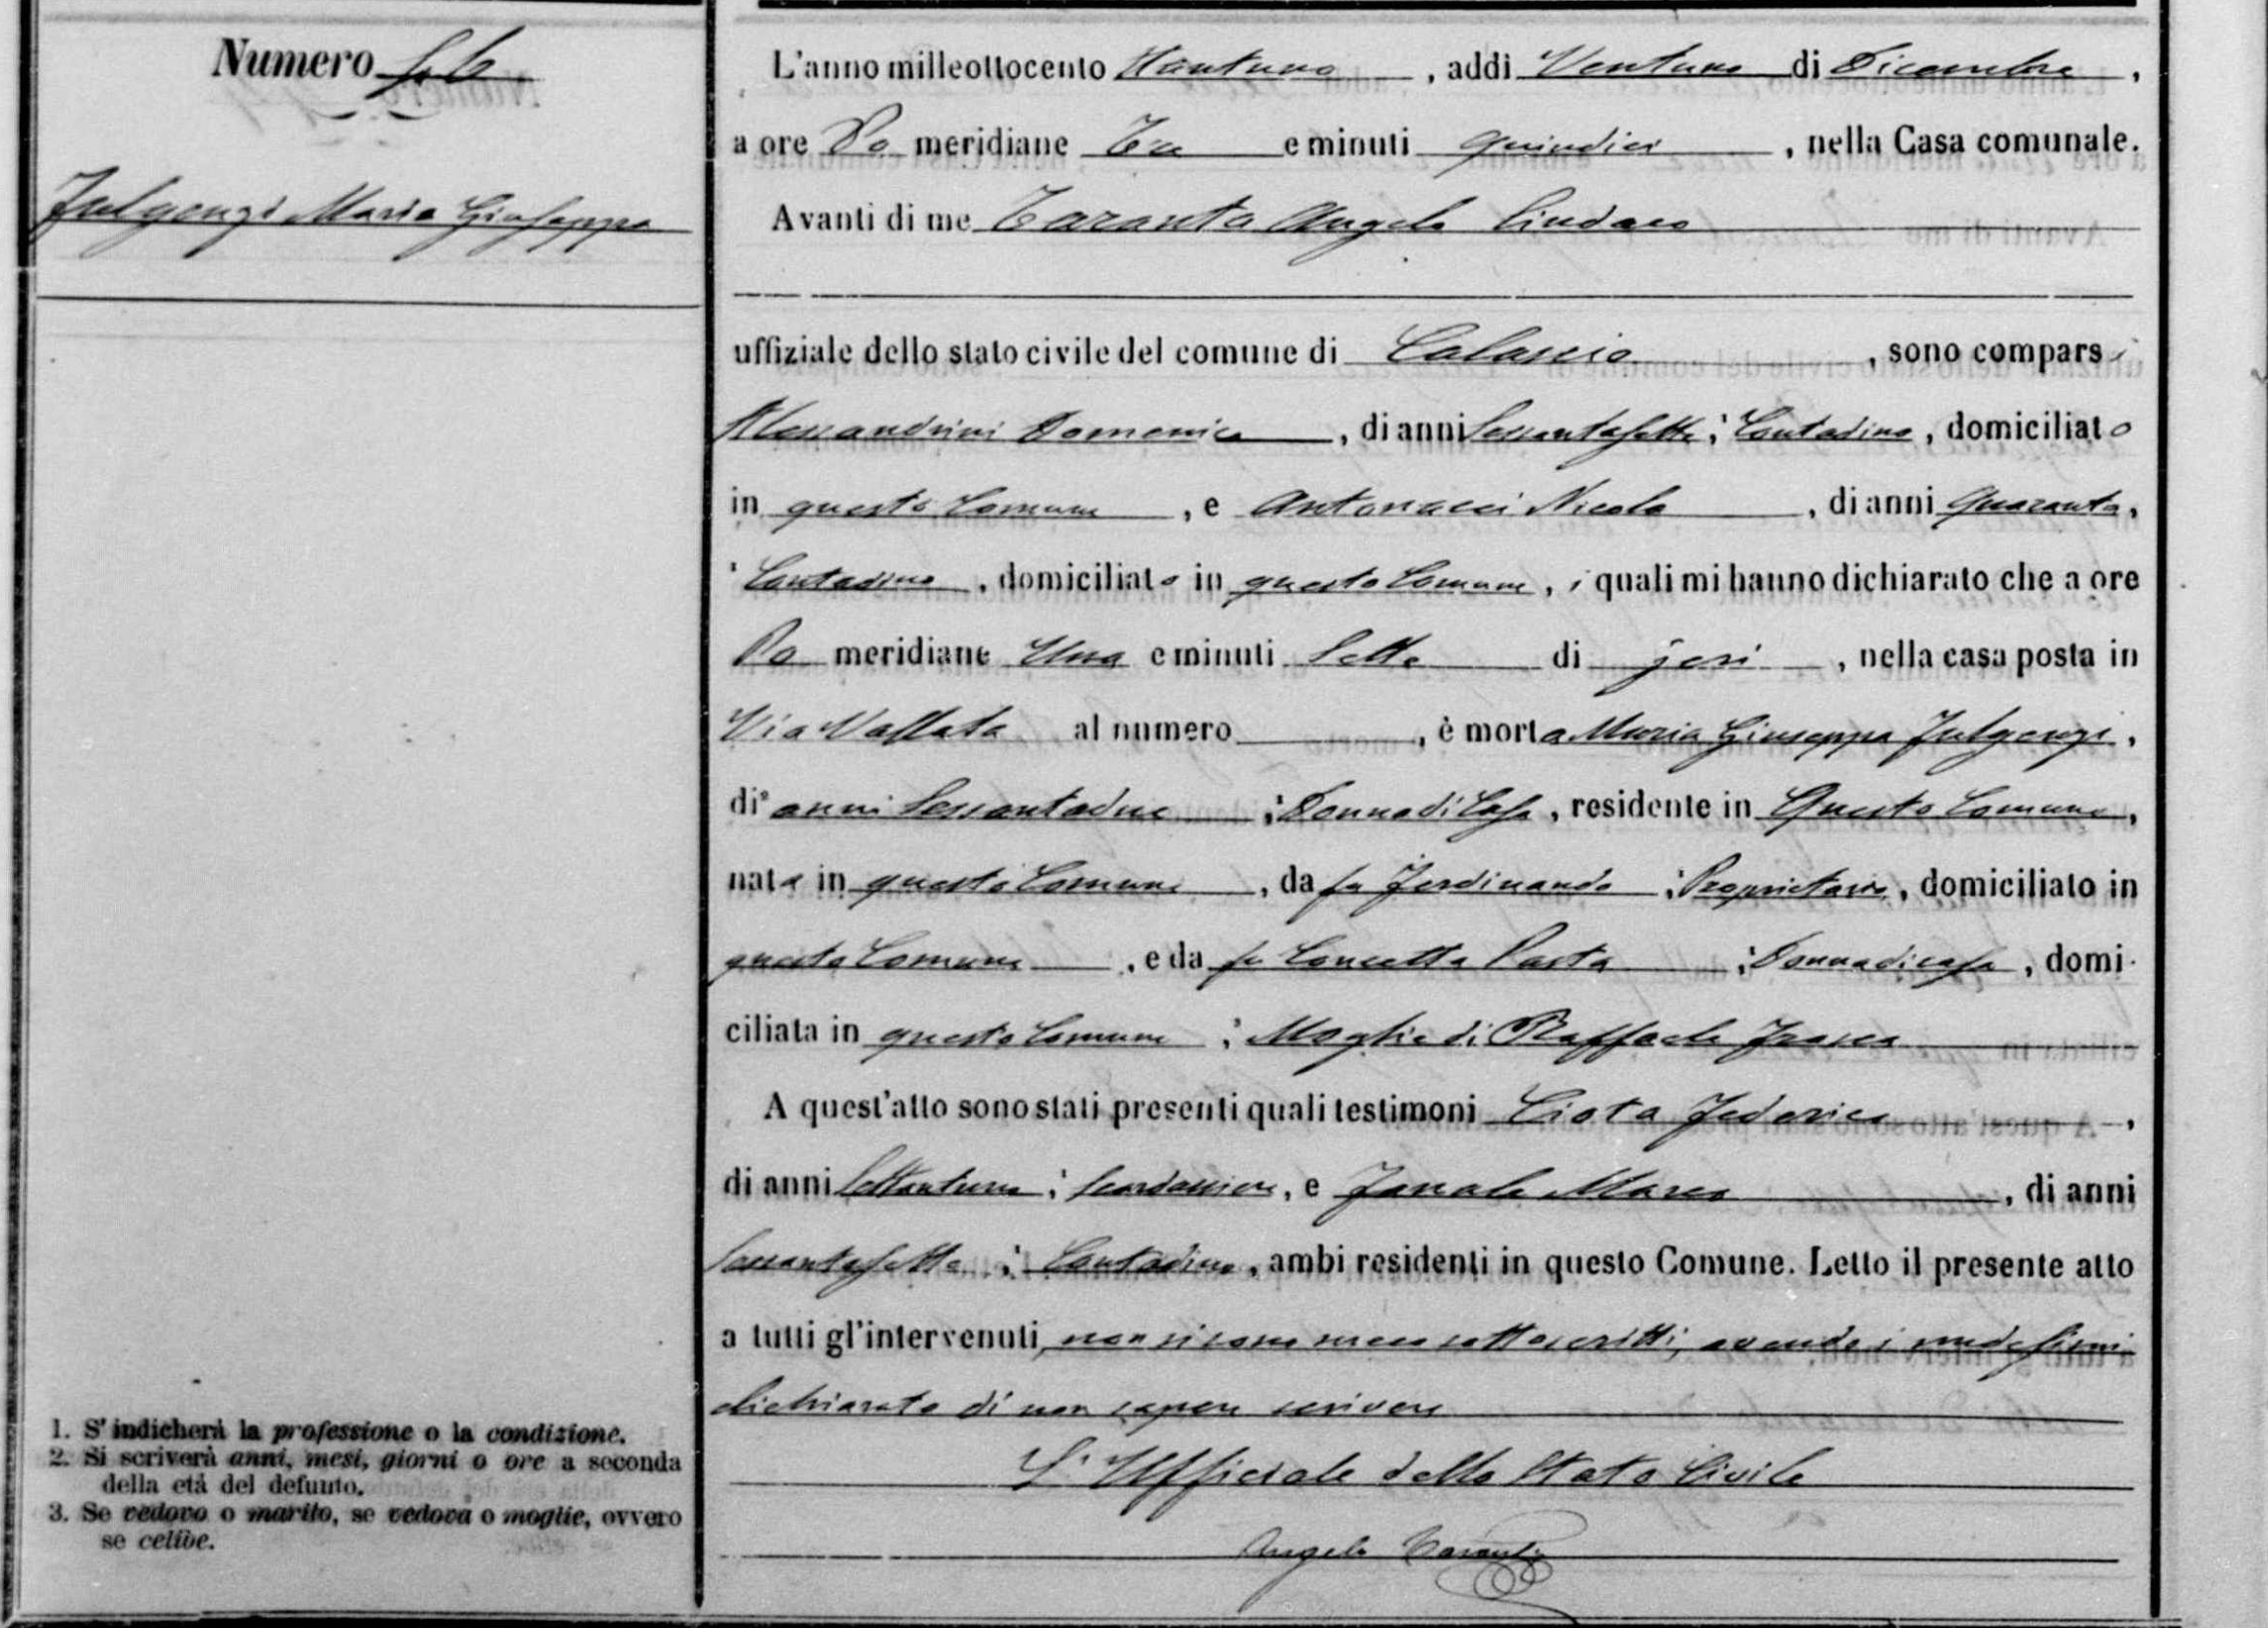 Numero
Fulgenzi Maria Giuseppa
1. S'indicherà la professione o la condizione.
2. Si scriverà anni, mesi, giorni o ore a seconda
della età del defunto.
3. Se vedovo o marito, se vedova o moglie, ovvero
se celibe.
L'anno milleottocento , addì Ventuno di Dicembre ,
a ore Po meridiane Tre e minuti quindici , nella Casa comunale.
Avanti di me Taranta Angelo Sindaco
uffiziale dello stato civile del comune di Calascio , sono comparsi
Alessandrini Domenico , di anni Sessantasette ; Contadino , domiciliato
in questo Comune , e Antonacci Nicola , di anni Quaranta,
Contadino , domiciliato in questo Comune , i quali mi hanno dichiarato che a ore
Po meridiane Una e minuti Sette di jeri , nella casa posta in
Via Vallata al numero , è morta Maria Giuseppa Fulgenzi ,
di anni Sessantadue ; Donna di Casa , residente in Questo Comune ,
nata in questo Comune , da fu Ferdinando ; Proprietario , domiciliato in
questo Comune , e da fu Concetta Pasta ; Donna di casa , domi-
ciliata in questo Comune ; Moglie di Raffaele Frasca
A quest'atto sono stati presenti quali testimoni Ciota Federico ,
di anni Settantuno ; Scardassiere , e Marco , di anni
Sessantasette ; Contadino , ambi residenti in questo Comune. Letto il presente atto
a tutti gl'intervenuti, non si sono meco sottoscritti, avendo i medesimi
dichiarato di non sapere scrivere
L'Uffiziale dello Stato Civile
Angelo Taranta